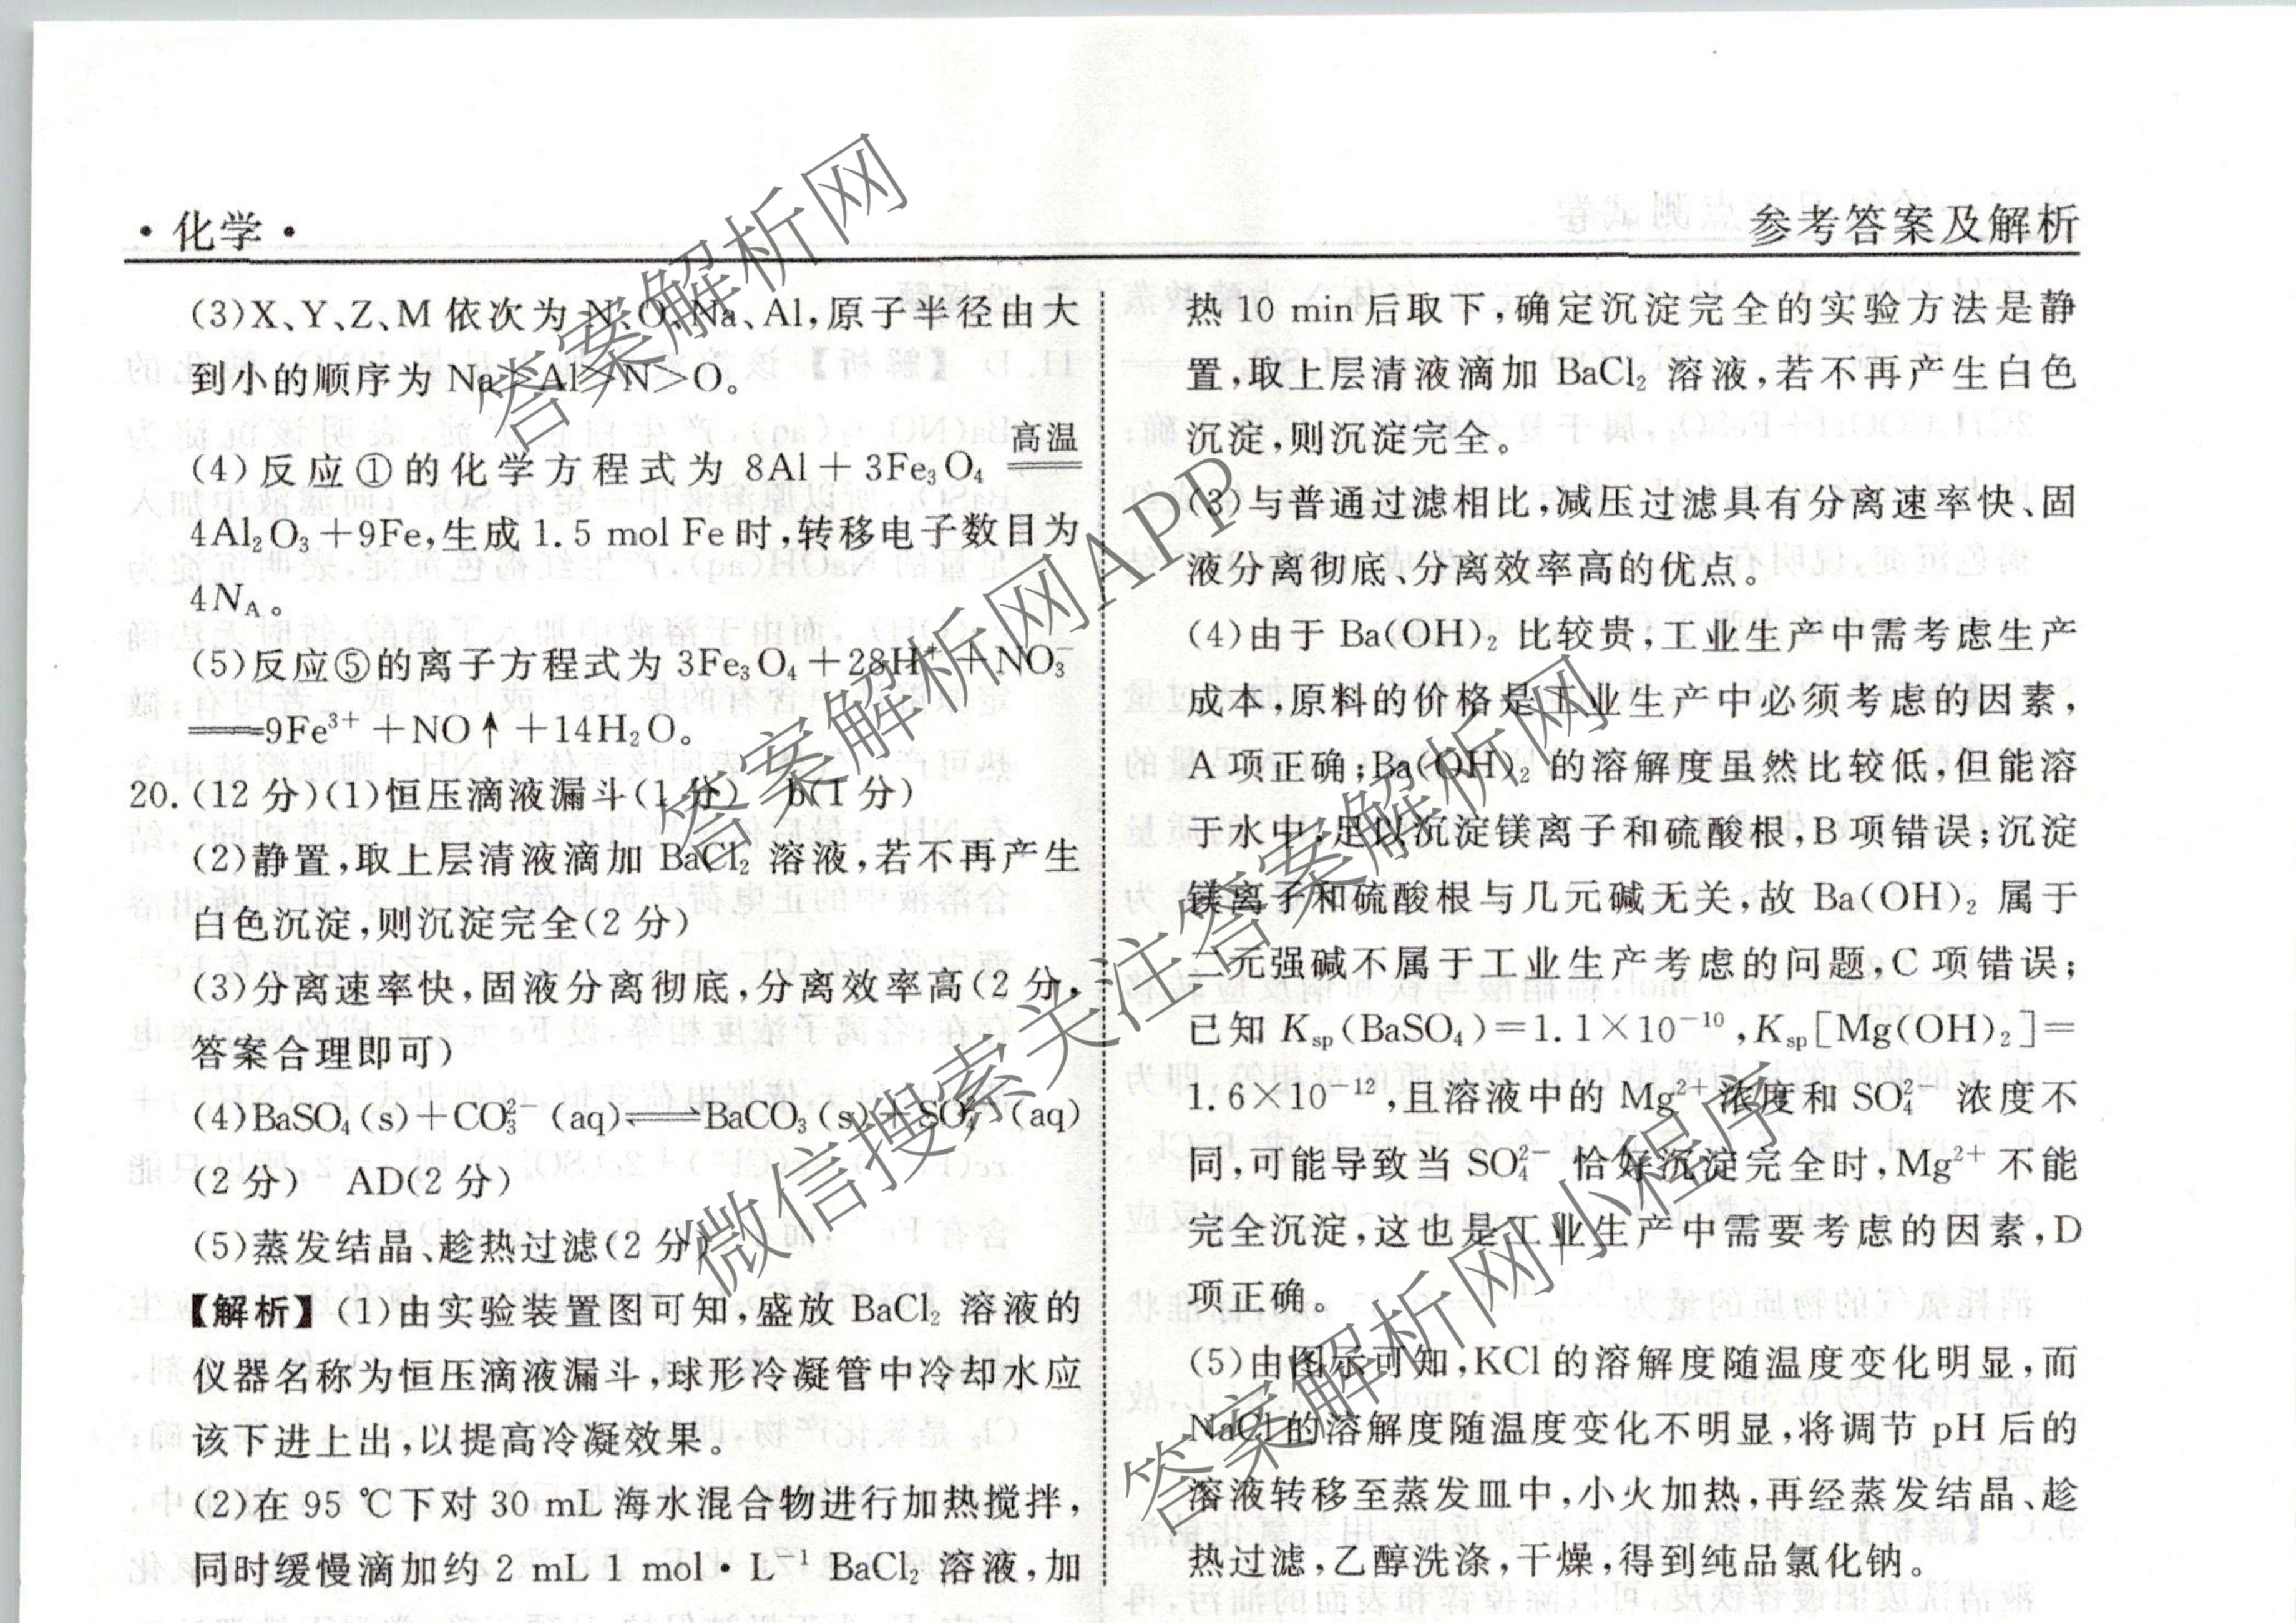 ·化学·
参考答案及解析
(3)X、Y、Z、M 依次为 N、O、Na、Al,原子半径由大
到小的顺序为 Na>Al>N>O。
(4)反应①的化学方程式为 8Al+3Fe₃O₄ 高温══
4Al₂O₃+9Fe,生成 1.5 mol Fe 时,转移电子数目为
4N_A。
(5)反应⑤的离子方程式为 3Fe₃O₄+28H⁺+NO₃⁻
══9Fe³⁺+NO↑+14H₂O。
20.(12 分)(1)恒压滴液漏斗(1 分) b(1 分)
(2)静置,取上层清液滴加 BaCl₂ 溶液,若不再产生
白色沉淀,则沉淀完全(2 分)
(3)分离速率快,固液分离彻底,分离效率高(2 分,
答案合理即可)
(4)BaSO₄(s)+CO₃²⁻(aq)⇌BaCO₃(s)+SO₄²⁻(aq)
(2 分) AD(2 分)
(5)蒸发结晶、趁热过滤(2 分)
【解析】(1)由实验装置图可知,盛放 BaCl₂ 溶液的
仪器名称为恒压滴液漏斗,球形冷凝管中冷却水应
该下进上出,以提高冷凝效果。
(2)在 95 ℃下对 30 mL 海水混合物进行加热搅拌,
同时缓慢滴加约 2 mL 1 mol·L⁻¹ BaCl₂ 溶液,加
热 10 min 后取下,确定沉淀完全的实验方法是静
置,取上层清液滴加 BaCl₂ 溶液,若不再产生白色
沉淀,则沉淀完全。
(3)与普通过滤相比,减压过滤具有分离速率快、固
液分离彻底、分离效率高的优点。
(4)由于 Ba(OH)₂ 比较贵,工业生产中需考虑生产
成本,原料的价格是工业生产中必须考虑的因素,
A 项正确;Ba(OH)₂ 的溶解度虽然比较低,但能溶
于水中,足以沉淀镁离子和硫酸根,B 项错误;沉淀
镁离子和硫酸根与几元碱无关,故 Ba(OH)₂ 属于
二元强碱不属于工业生产考虑的问题,C 项错误;
已知 Kₛₚ(BaSO₄)=1.1×10⁻¹⁰,Kₛₚ[Mg(OH)₂]=
1.6×10⁻¹²,且溶液中的 Mg²⁺ 浓度和 SO₄²⁻ 浓度不
同,可能导致当 SO₄²⁻ 恰好沉淀完全时,Mg²⁺ 不能
完全沉淀,这也是工业生产中需要考虑的因素,D
项正确。
(5)由图示可知,KCl 的溶解度随温度变化明显,而
NaCl 的溶解度随温度变化不明显,将调节 pH 后的
溶液转移至蒸发皿中,小火加热,再经蒸发结晶、趁
热过滤,乙醇洗涤,干燥,得到纯品氯化钠。
答案解析网
答案解析网APP
微信搜索关注答案解析网
答案解析网小程序